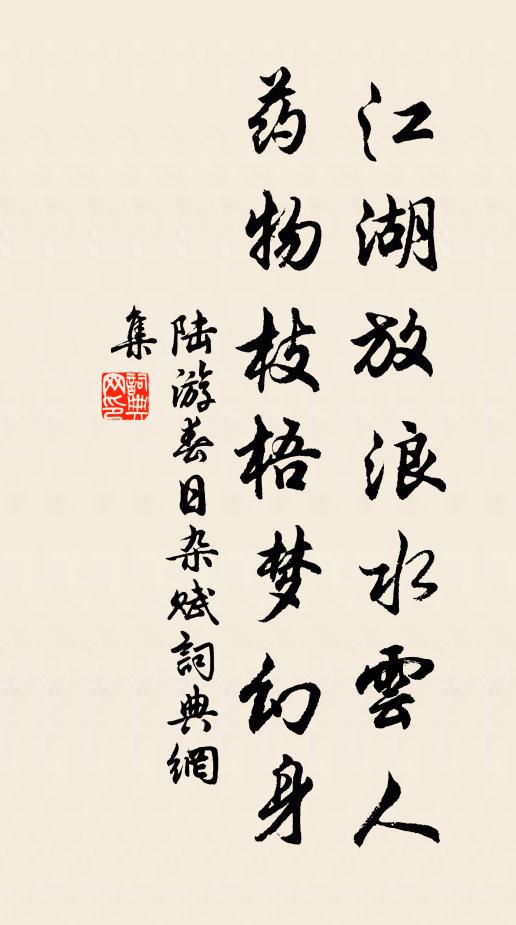 江湖放浪水雲人
药物枝梧梦幻身
陆游春日杂赋詞典網
集
詞典
网印